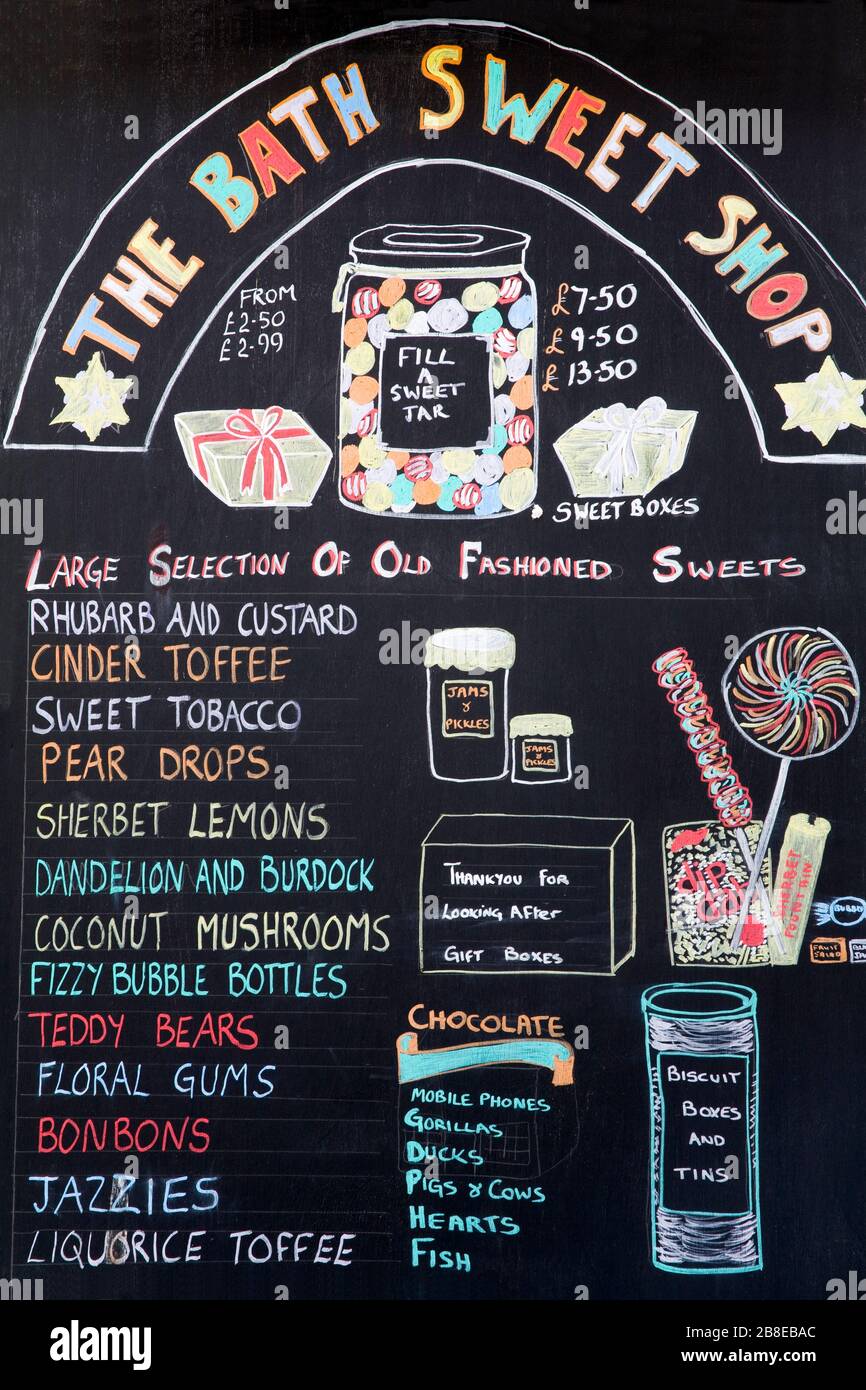 THE BATH SWEET SHOP
FROM
£2-50
£2-99
FILL
A
SWEET
JAR
£7-50
£9-50
£13-50
SWEET BOXES
LARGE SELECTION OF OLD FASHIONED SWEETS
RHUBARB AND CUSTARD
CINDER TOFFEE
SWEET TOBACCO
PEAR DROPS
SHERBET LEMONS
DANDELION AND BURDOCK
COCONUT MUSHROOMS
FIZZY BUBBLE BOTTLES
TEDDY BEARS
FLORAL GUMS
BONBONS
JAZZIES
LIQUORICE TOFFEE
JAMS
&
PICKLES
JAMS
&
PICKLES
THANKYOU FOR
LOOKING AFTER
GIFT BOXES
DIP
DAB
SHERBET
FOUNTAIN
BUBBO
FRUIT
SALAD
CHOCOLATE
MOBILE PHONES
GORILLAS
DUCKS
PIGS & COWS
HEARTS
FISH
BISCUIT
BOXES
AND
TINS
alamy
Image ID: 2B8EBAC
www.alamy.com